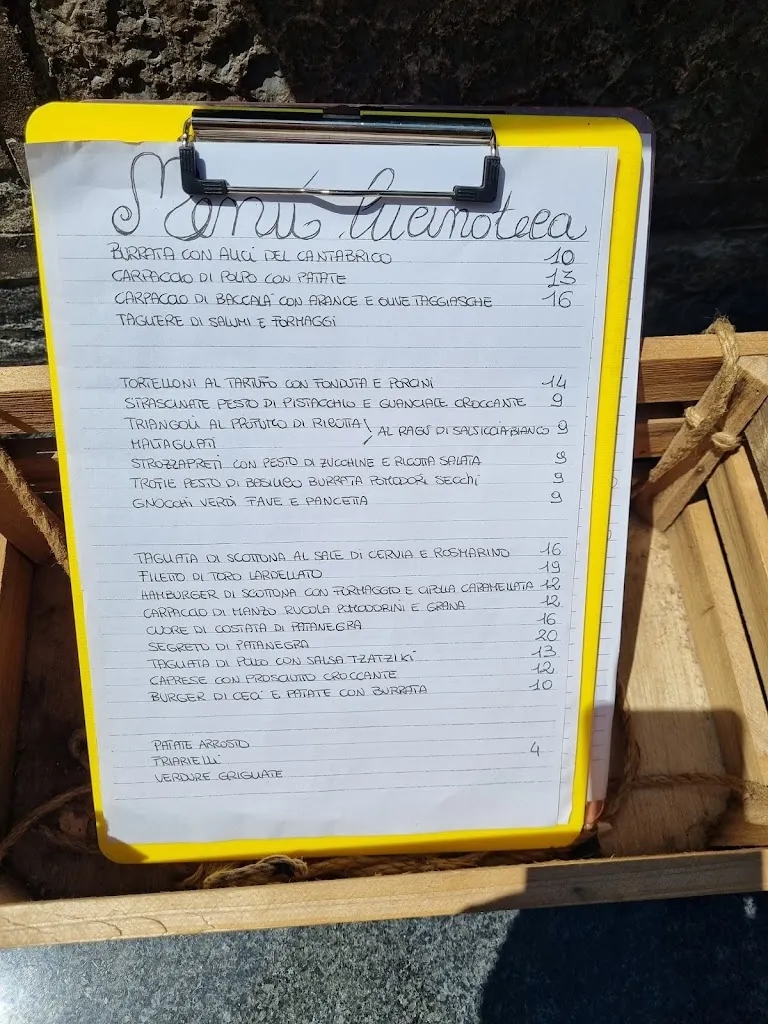 Menú Cucinoteca
BURRATA CON ALICI DEL CANTABRICO 10
CARPACCIO DI POLPO CON PATATE 13
CARPACCIO DI BACCALA' CON ARANCE E OLIVE TAGGIASCHE 16
TAGLIERE DI SALUMI E FORMAGGI
TORTELLONI AL TARTUFO CON FONDUTA E PORCINI 14
STRASCINATE PESTO DI PISTACCHIO E GUANCIALE CROCCANTE 9
TRIANGOLI AL PROFUMO DI RICOTTA
MALTAGLIATI
AL RAGÙ DI SALSICCIA BIANCO 9
STROZZAPRETI CON PESTO DI ZUCCHINE E RICOTTA SALATA 9
TROFIE PESTO DI BASILICO BURRATA POMODORI SECCHI 9
GNOCCHI VERDI FAVE E PANCETTA 9
TAGLIATA DI SCOTTONA AL SALE DI CERVIA E ROSMARINO 16
FILETTO DI TORO LARDELLATO 19
HAMBURGER DI SCOTTONA CON FORMAGGIO E CIPOLLA CARAMELLATA 12
CARPACCIO DI MANZO RUCOLA POMODORINI E GRANA 12
CUORE DI COSTATA DI PATANEGRA 16
SEGRETO DI PATANEGRA 20
TAGLIATA DI POLLO CON SALSA TZATZIKI 13
CAPRESE CON PROSCIUTTO CROCCANTE 12
BURGER DI CECI E PATATE CON BURRATA 10
PATATE ARROSTO
FRIARIELLI 4
VERDURE GRIGLIATE